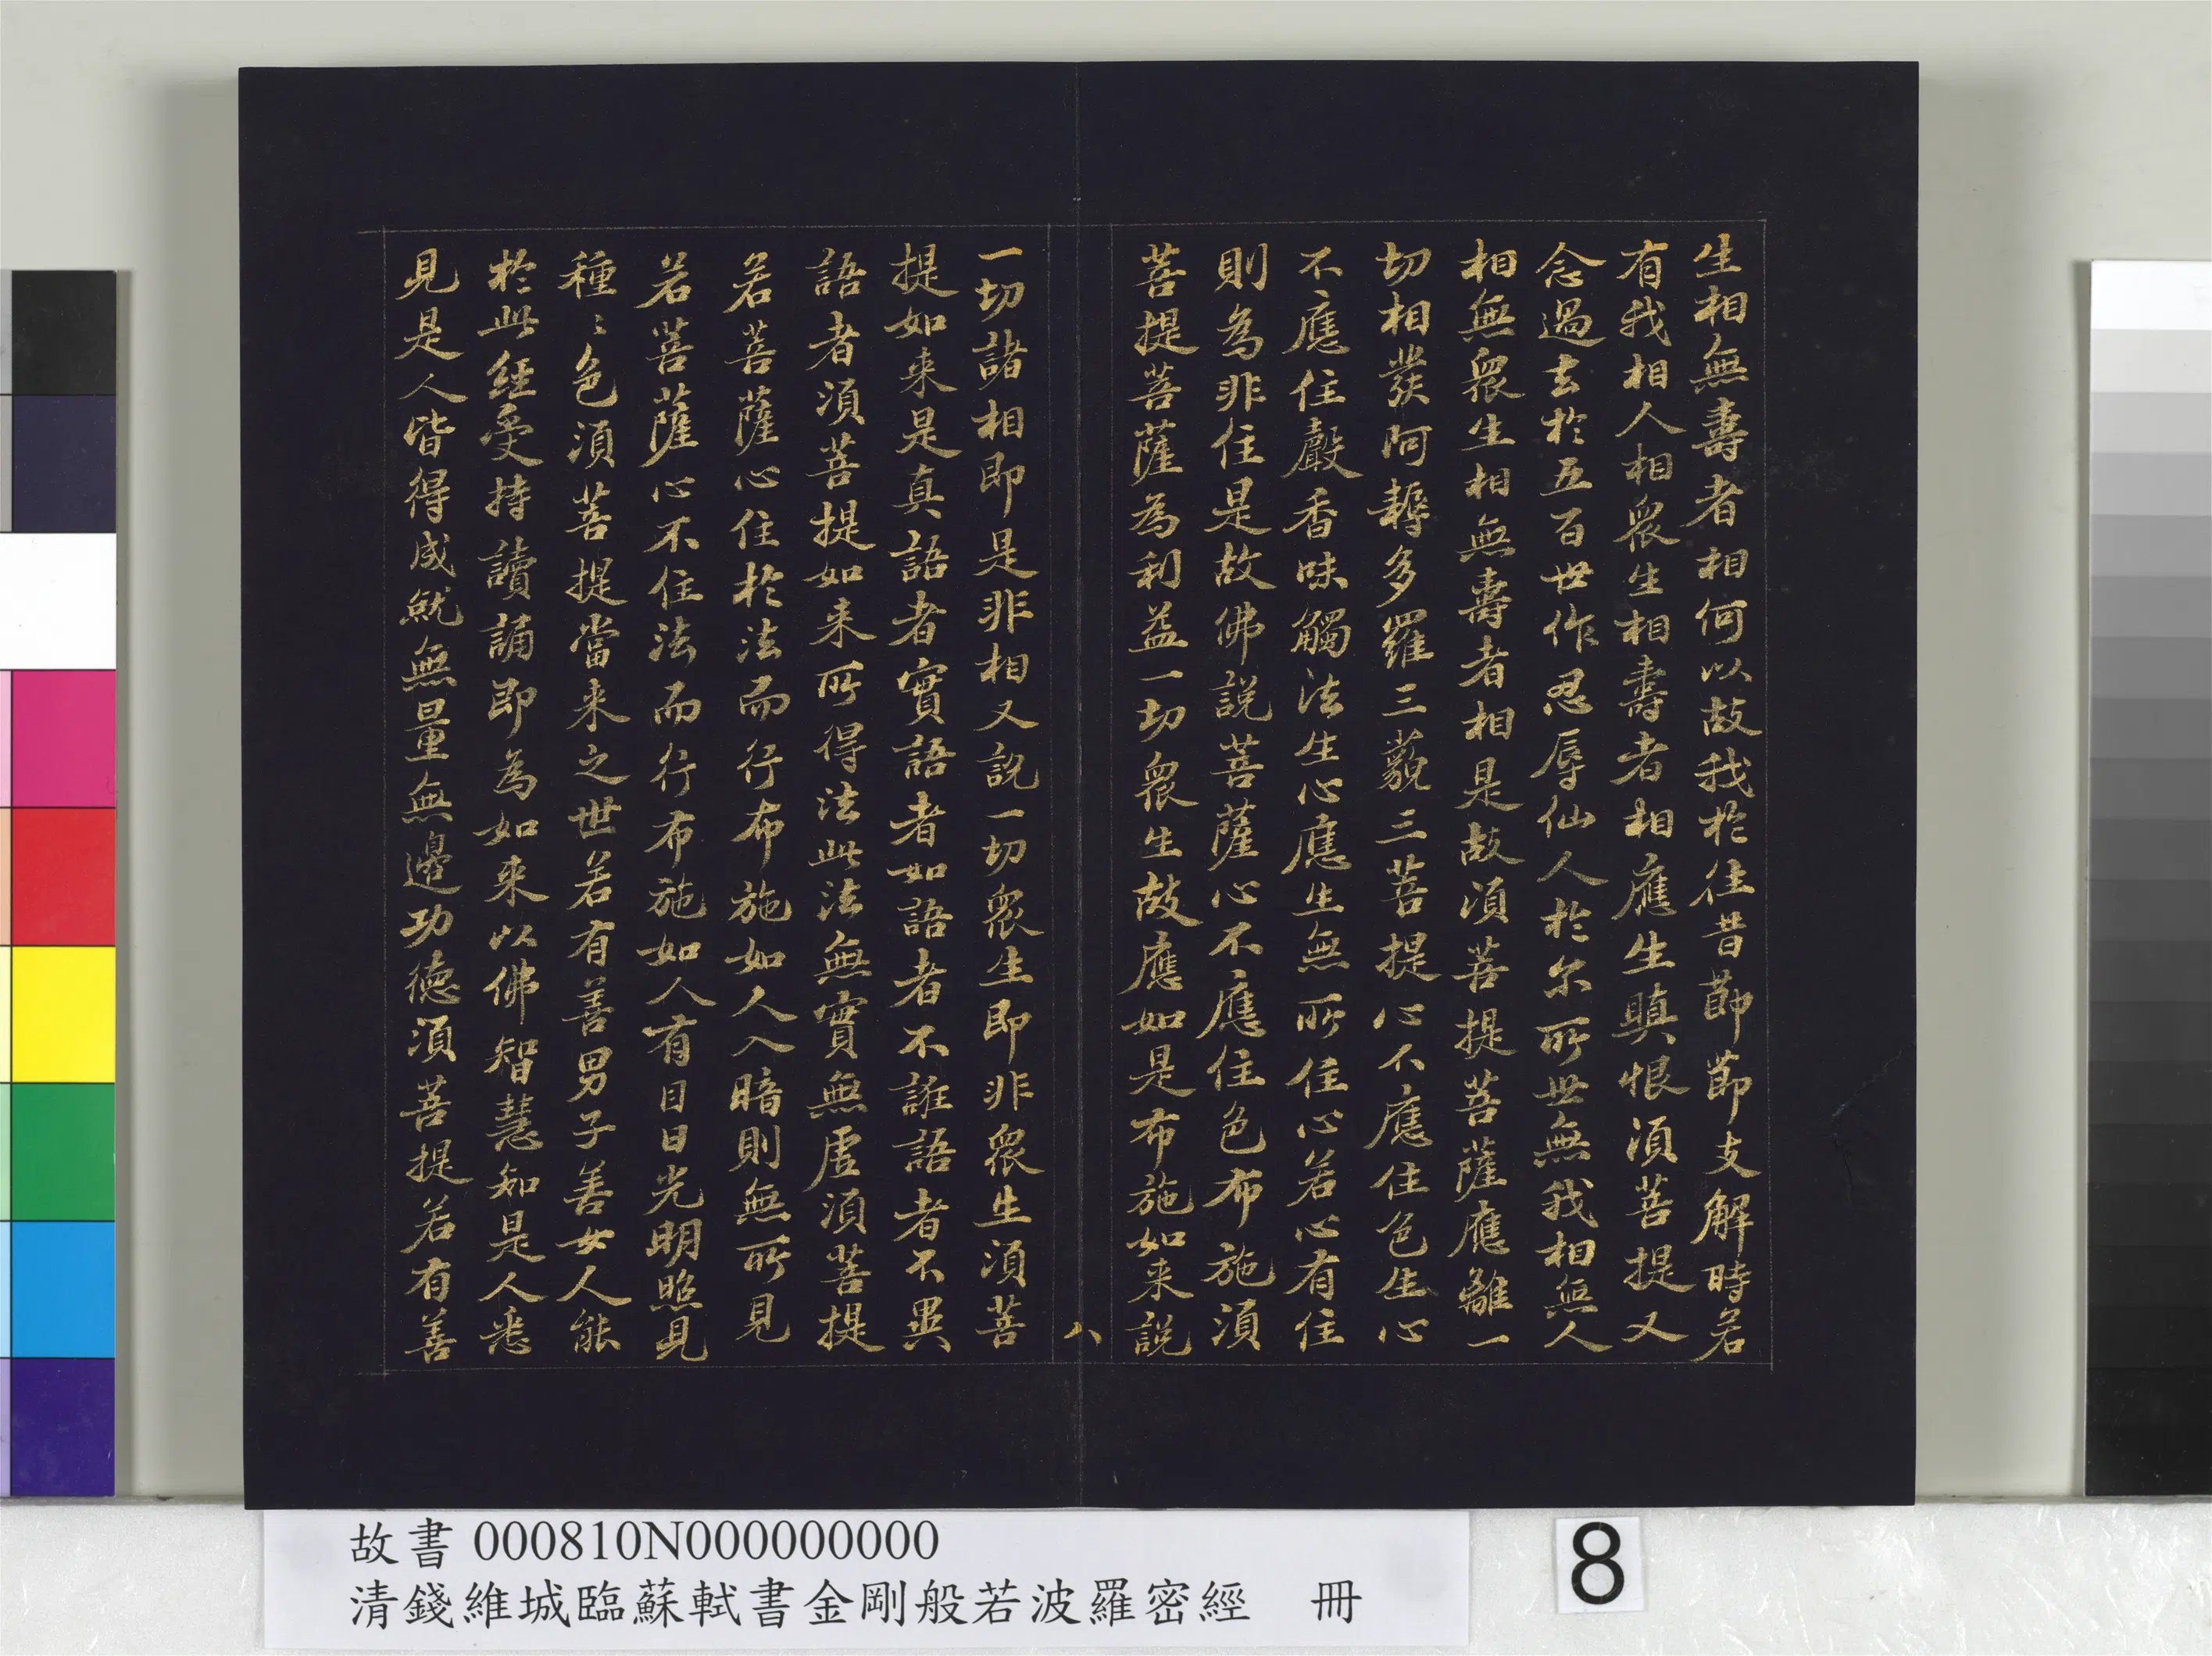 生相無壽者相何以故我於往昔莭莭支解時若
有我相人相衆生相壽者相應生瞋恨湏菩提又
念過去於五百世作忍辱仙人於尔所世無我相無人
相無衆生相無壽者相是故湏菩提菩薩應離一
切相發阿耨多羅三藐三菩提心不應住色生心
不應住聲香味觸法生心應生無所住心若心有住
則為非住是故佛說菩薩心不應住色布施湏
菩提菩薩為利益一切衆生故應如是布施如来說
八
一切諸相即是非相又說一切衆生即非衆生湏菩
提如来是真語者實語者如語者不誑語者不異
語者湏菩提如来所得法此法無實無虛湏菩提
若菩薩心住於法而行布施如人入暗則無所見
若菩薩心不住法而行布施如人有目日光明照見
種〻色湏菩提當来之世若有善男子善女人能
於此經受持讀誦即為如来以佛智慧知是人悉
見是人皆得成就無量無邊功德湏菩提若有善
故書 000810N000000000
清錢維城臨蘇軾書金剛般若波羅密經 冊
8